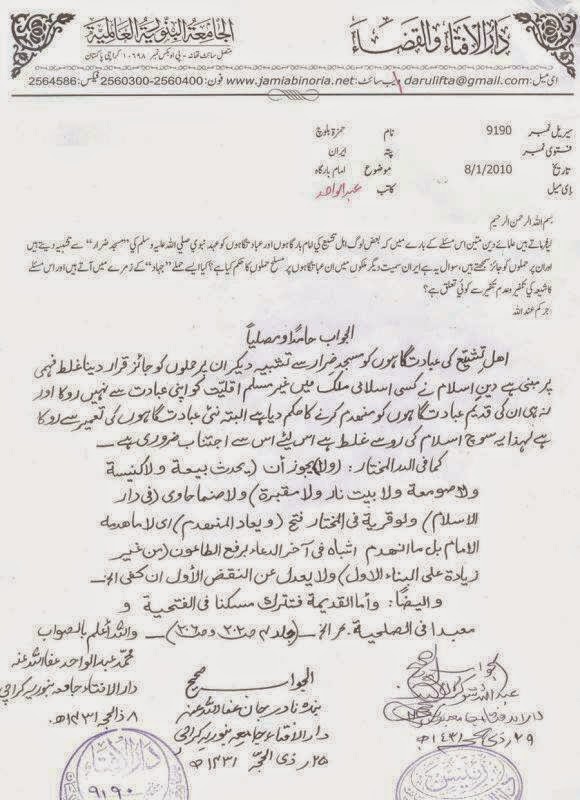 دار الافتاء والقضاء
الجامعة البنورية العالمية
متصل سائٹ تھانہ - پی او بکس نمبر ۱۰۶۹۸ کراچی پاکستان
ای میل: darulifta@gmail.com ویب سائٹ: www.jamiabinoria.net فون: 2560300-2560400 فیکس: 2564586
سیریل نمبر 9190 نام حمزہ بلوچ
فتویٰ نمبر پتہ ایران
تاریخ 8/1/2010 موضوع امام بارگاہ
ای میل کاتب عبدالواحد
بسم اللہ الرحمن الرحیم
کیا فرماتے ہیں علمائے دین متین اس مسئلے کے بارے میں کہ بعض لوگ اہل تشیع کی امام بارگاہوں اور عبادتگاہوں کو عہد نبوی صلی اللہ علیہ وسلم کی "مسجد ضرار" سے تشبیہ دیتے ہیں
اور ان پر حملوں کو جائز سمجھتے ہیں، سوال یہ ہے ایران سمیت دیگر ملکوں میں ان عبادتگاہوں پر مسلح حملوں کا حکم کیا ہے؟ کیا ایسے حملے "جہاد" کے زمرے میں آتے ہیں اور اس مسئلے
کا شیعہ کی تکفیر وعدم تکفیر سے کوئی تعلق ہے؟
اجرکم عند اللہ
الجواب حامداً ومصلیاً
اهل تشیع کی عبادت گاہوں کو مسجد ضرار سے تشبیہ دیکر ان پر حملوں کو جائز قرار دینا غلط فہمی
پر مبنی ہے دین اسلام نے کسی اسلامی ملک میں غیر مسلم اقلیت کو اپنی عبادت سے نہیں روکا اور
نہ ہی ان کی قدیم عبادت گاہوں کو منہدم کرنے کا حکم دیا ہے البتہ نئی عبادت گاہوں کی تعمیر سے روکا
ہے لہذا یہ سوچ اسلام کی رو سے غلط ہے اس لیئے اس سے اجتناب ضروری ہے ــ
کما فی الدر المختار: (ولا) یجوز أن (یحدث بیعة ولا کنیسة
ولا صومعة ولا بیت نار ولا مقبرة) ولا صنما حاوی (فی دار
الاسلام) ولو قریة فی المختار فتح (ویعاد المنهدم) ای لا ما هدمه
الامام بل ما انهدم اشباه فی آخر الدعاء برفع الطاعون (من غیر
زیادة علی البناء الاول) ولا یعدل عن النقض الأول ان کفی الخ
و ایضًا: وأما القدیمة فتترك مسکنا فی الفتحیة و
معبدا فی الصلحیة. بحر الخ (جلد ۴ ص ۲۰۲ و ص ۲۰۶) ــ واللہ أعلم بالصواب
محمد عبد الواحد عفا اللہ عنہ
دار الافتاء جامعہ بنوریہ کراچی
۸ ذالحجہ ۱۴۳۱ھ
الجواب صحیح
بندہ نادر جان عفا اللہ عنہ
دار الافتاء جامعہ بنوریہ کراچی
۲۵ ذی الحجۃ ۱۴۳۱ھ
الجواب صحیح
۲۹ ذی الحجہ ۱۴۳۱ھ
دار الافتاء
۹۱۹۰
رئیس